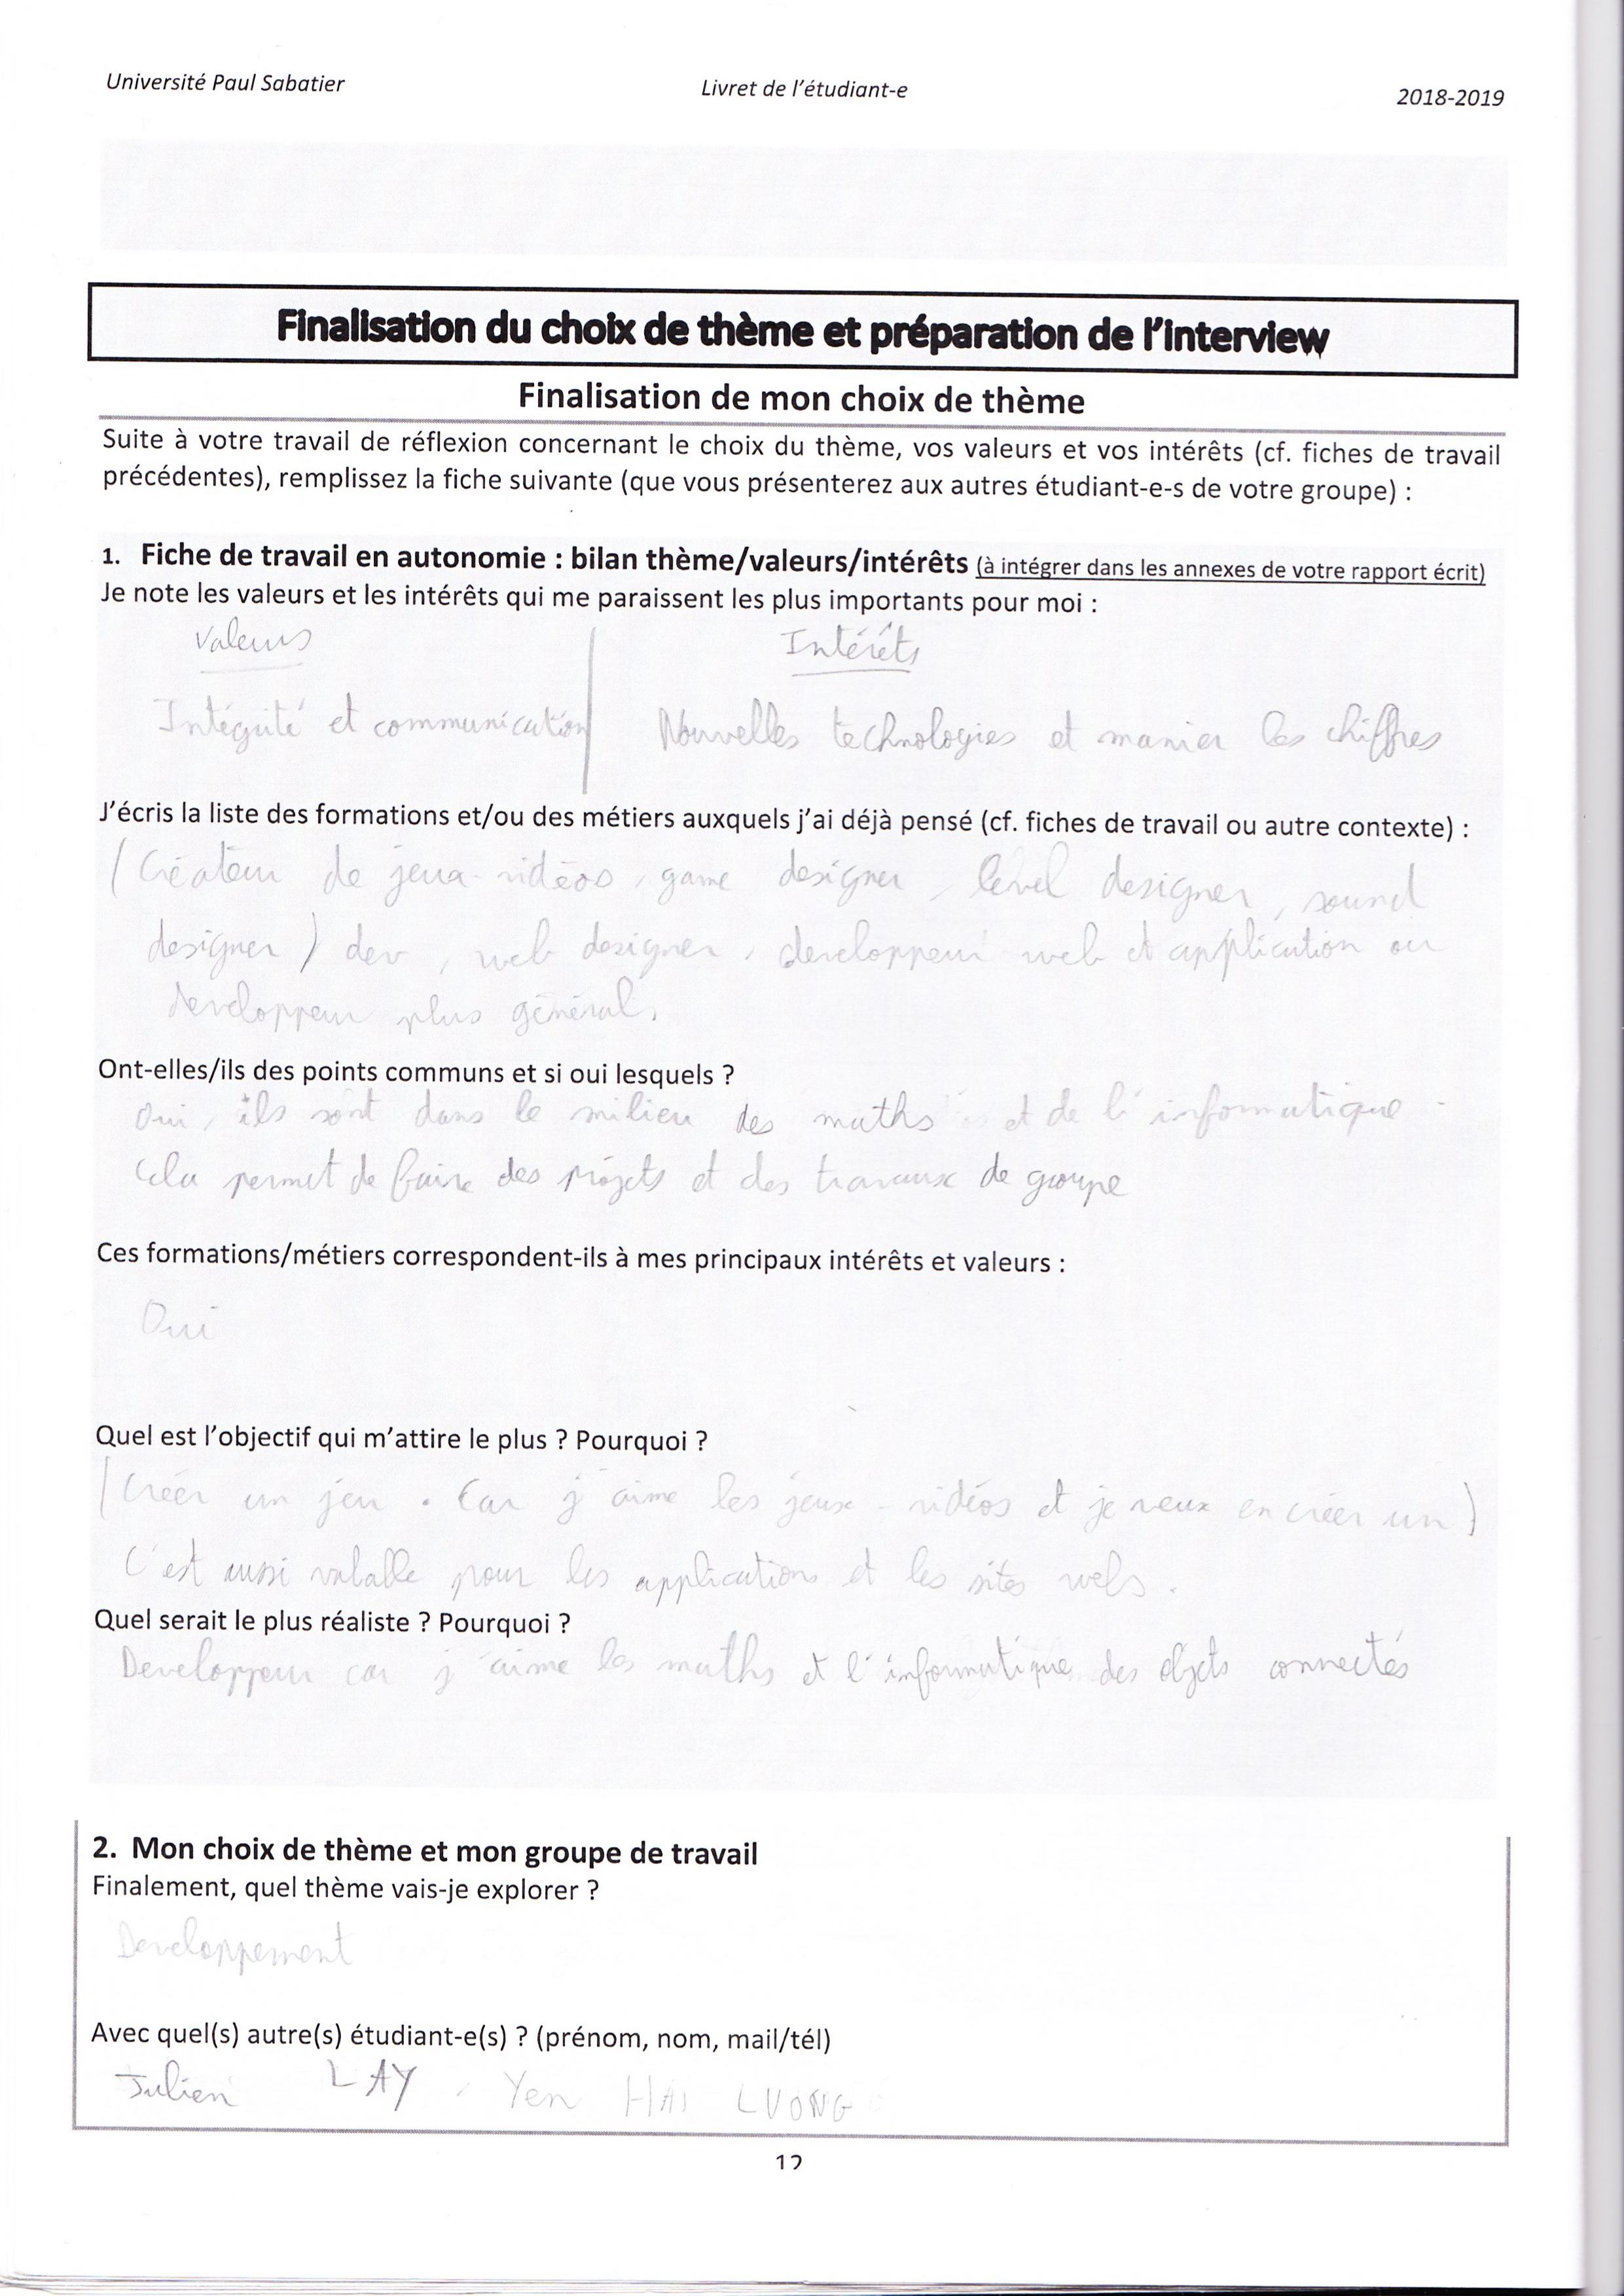 Université Paul Sabatier
Livret de l'étudiant-e
2018-2019
Finalisation du choix de thème et préparation de l'interview
Finalisation de mon choix de thème
Suite à votre travail de réflexion concernant le choix du thème, vos valeurs et vos intérêts (cf. fiches de travail
précédentes), remplissez la fiche suivante (que vous présenterez aux autres étudiant-e-s de votre groupe) :
1. Fiche de travail en autonomie : bilan thème/valeurs/intérêts (à intégrer dans les annexes de votre rapport écrit)
Je note les valeurs et les intérêts qui me paraissent les plus importants pour moi :
Valeurs
Intérêts
Intégrité et communication
Nouvelles technologies et manier les chiffres
J'écris la liste des formations et/ou des métiers auxquels j'ai déjà pensé (cf. fiches de travail ou autre contexte) :
(Créateur de jeux-vidéos, game designer, level designer, sound
designer) dev, web designer, developpeur web et application ou
developpeur plus général.
Ont-elles/ils des points communs et si oui lesquels ?
Oui, ils sont dans le milieu des maths et de l'informatique.
Cela permet de faire des projets et des travaux de groupe
Ces formations/métiers correspondent-ils à mes principaux intérêts et valeurs :
Oui
Quel est l'objectif qui m'attire le plus ? Pourquoi ?
(Créer un jeu. Car j'aime les jeux-vidéos et je veux en créer un)
C'est aussi valable pour les applications et les sites webs.
Quel serait le plus réaliste ? Pourquoi ?
Developpeur car j'aime les maths et l'informatique des objets connectés
2. Mon choix de thème et mon groupe de travail
Finalement, quel thème vais-je explorer ?
Developpement
Avec quel(s) autre(s) étudiant-e(s) ? (prénom, nom, mail/tél)
Julien LAY, Yen HAI LUONG
12